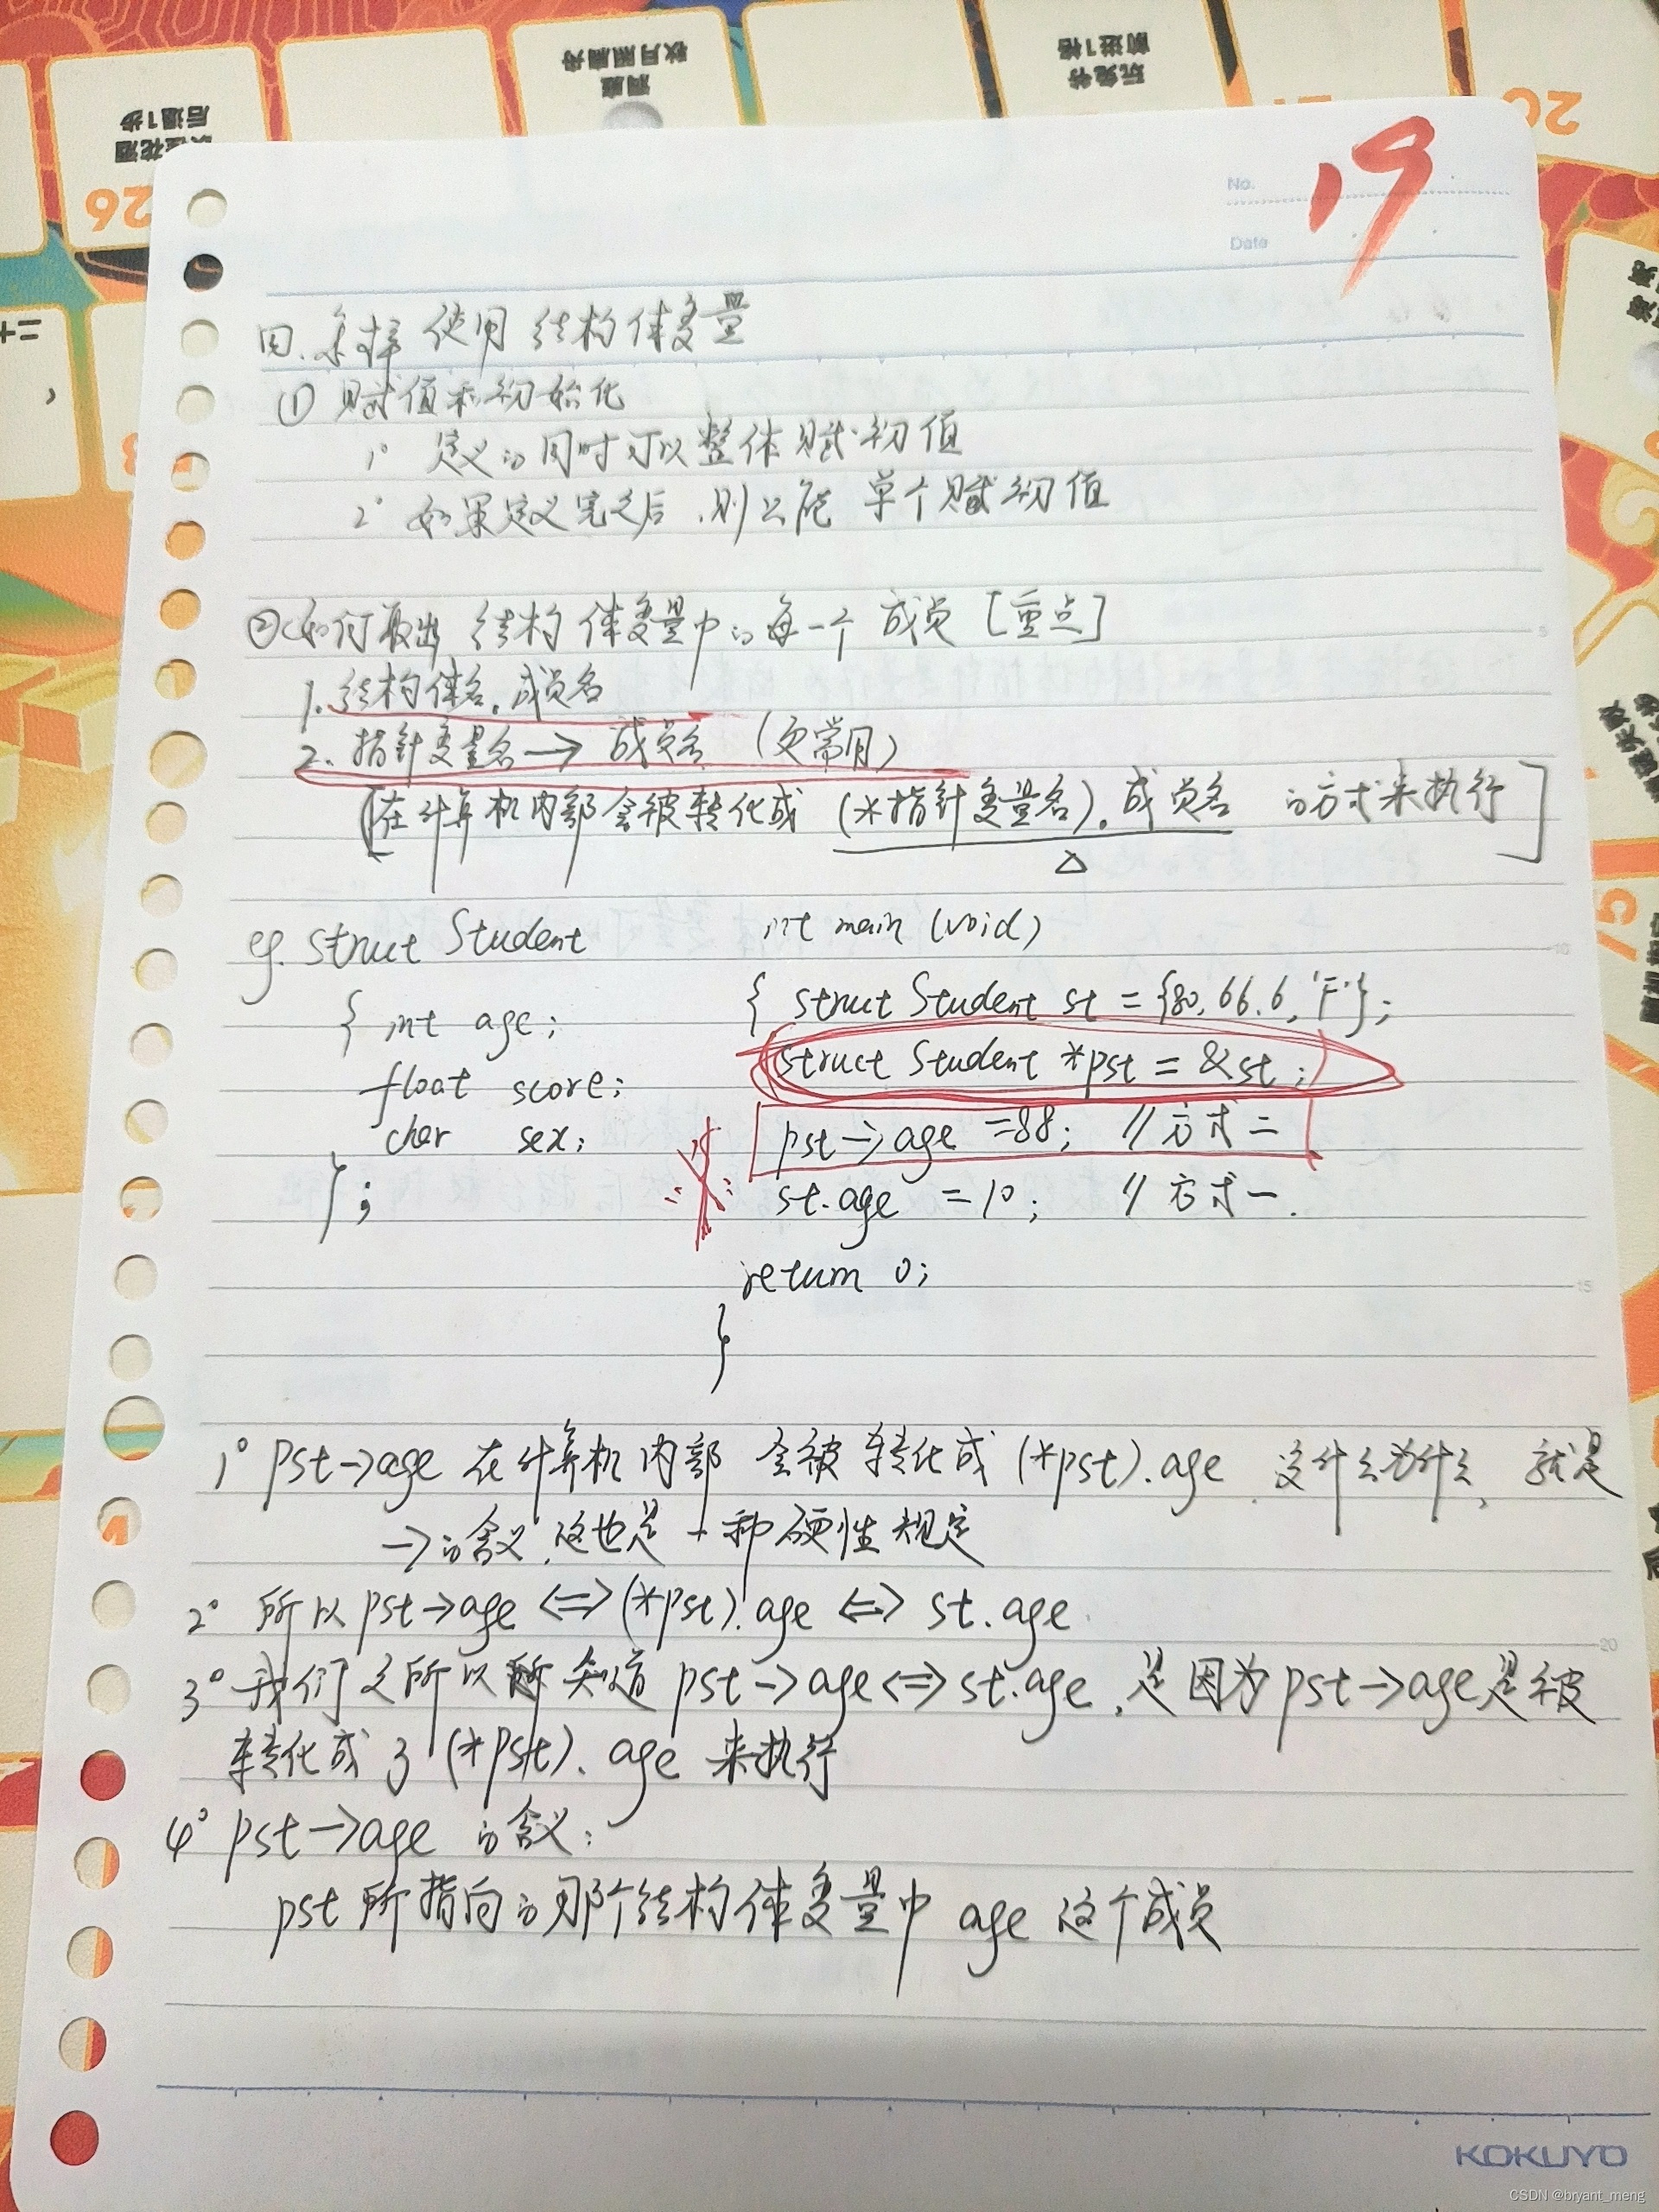 后退1步
洞庭
秋月照扁舟
前进1格
26
20
No.
19
Date
四.怎样使用结构体变量
① 赋值和初始化
1° 定义的同时可以整体赋初值
2° 如果定义完之后,则只能单个赋初值
② 如何取出结构体变量中的每一个成员[重点]
1.结构体名.成员名
2.指针变量名→成员名(更常用)
[在计算机内部会被转化成(*指针变量名).成员名 的方式来执行]
eg. struct Student
{ int age;
float score;
char sex;
};
int main (void)
{ struct Student st = {80, 66.6, 'F'};
struct Student *pst = &st;
pst->age = 88; //方式二
st.age = 10; //方式一.
return 0;
}
1° pst->age 在计算机内部会被转化成(*pst).age,这什么为什么,就是
->的含义,这也是一种硬性规定
2° 所以 pst->age <=> (*pst).age <=> st.age
3° 我们之所以知道 pst->age <=> st.age,是因为 pst->age是被
转化成了(*pst).age 来执行
4° pst->age 的含义:
pst 所指向的那个结构体变量中 age 这个成员
KOKUYO
CSDN @bryant_meng